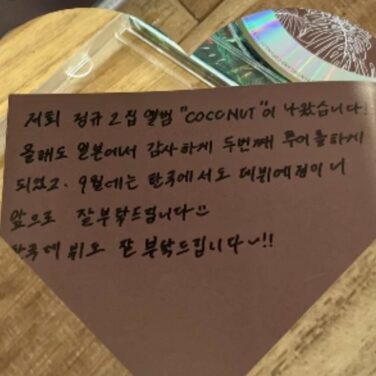 저희 정규 2집 앨범 "COCONUT"이 나왔습니다!
올해도 일본에서 감사하게 두번째 투어를하게
되었고. 9월에는 한국에서도 데뷔예정이니
앞으로 잘부탁드립니다
한국데뷔도 잘 부탁드립니다~!!